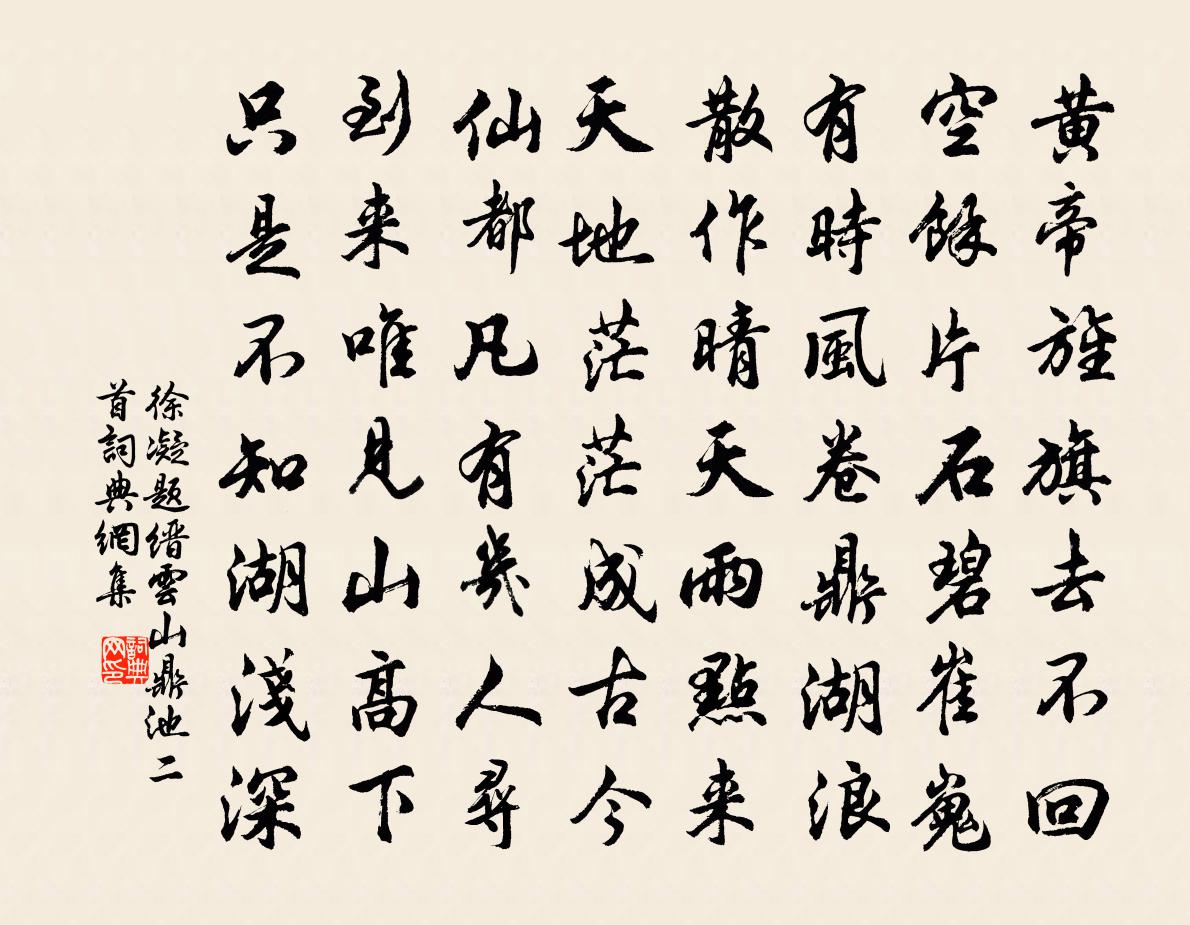 黄帝旌旗去不回
空餘片石碧崔嵬
有時風卷鼎湖浪
散作晴天雨點来
天地茫茫成古今
仙都凡有幾人尋
到来唯見山高下
只是不知湖淺深
徐凝题缙雲山鼎池二
首詞典網集
詞典
网印